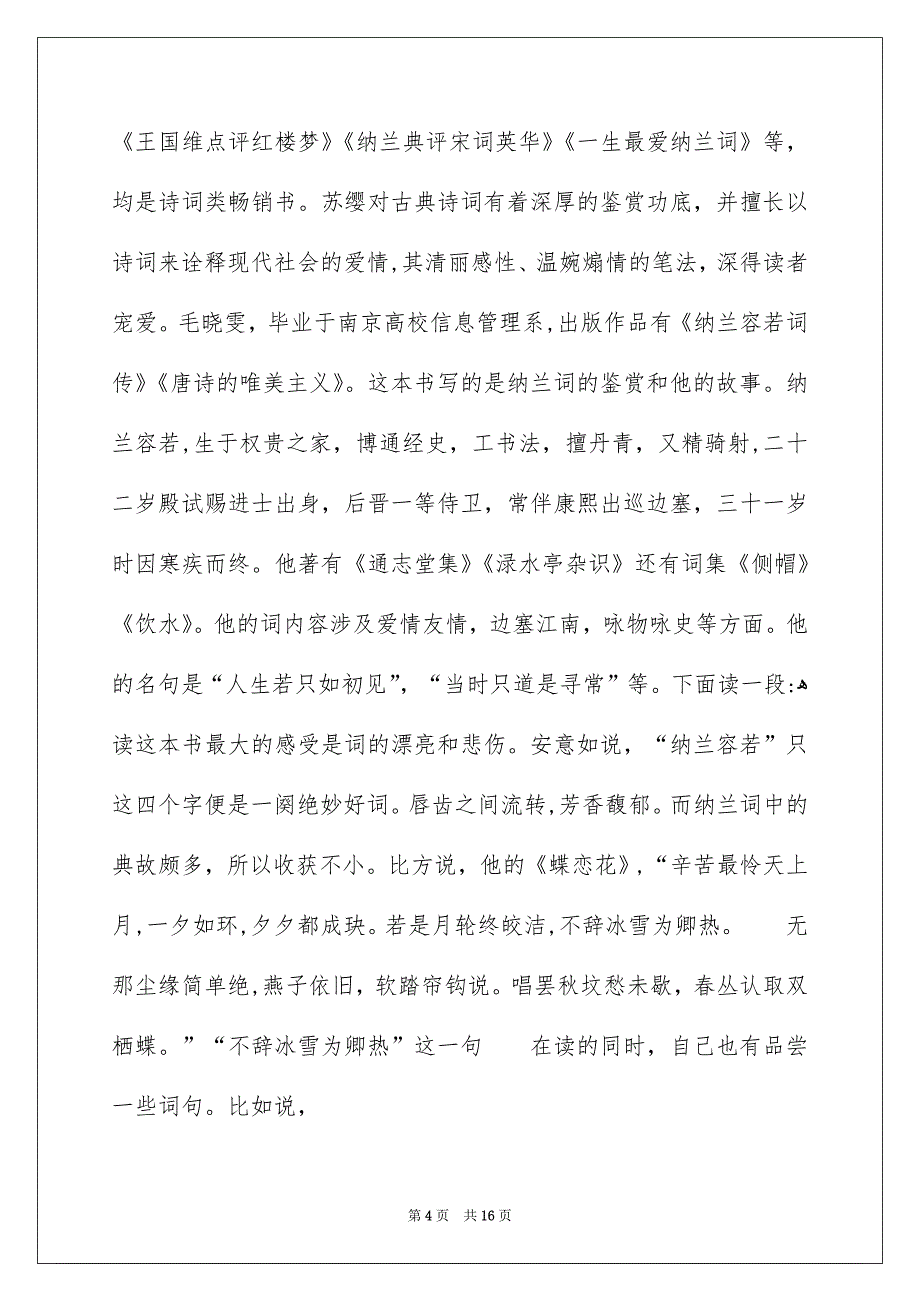 《王国维点评红楼梦》《纳兰典评宋词英华》《一生最爱纳兰词》等，
均是诗词类畅销书。苏缨对古典诗词有着深厚的鉴赏功底，并擅长以
诗词来诠释现代社会的爱情,其清丽感性、温婉煽情的笔法，深得读者
宠爱。毛晓雯，毕业于南京高校信息管理系,出版作品有《纳兰容若词
传》《唐诗的唯美主义》。这本书写的是纳兰词的鉴赏和他的故事。纳
兰容若,生于权贵之家，博通经史，工书法，擅丹青，又精骑射,二十
二岁殿试赐进士出身，后晋一等侍卫，常伴康熙出巡边塞，三十一岁
时因寒疾而终。他著有《通志堂集》《渌水亭杂识》还有词集《侧帽》
《饮水》。他的词内容涉及爱情友情，边塞江南，咏物咏史等方面。他
的名句是“人生若只如初见”，“当时只道是寻常”等。下面读一段:ﻫ
读这本书最大的感受是词的漂亮和悲伤。安意如说，“纳兰容若”只
这四个字便是一阕绝妙好词。唇齿之间流转,芳香馥郁。而纳兰词中的
典故颇多，所以收获不小。比方说，他的《蝶恋花》,“辛苦最怜天上
月,一夕如环,夕夕都成玦。若是月轮终皎洁,不辞冰雪为卿热。　　无
那尘缘简单绝,燕子依旧，软踏帘钩说。唱罢秋坟愁未歇，春丛认取双
栖蝶。”“不辞冰雪为卿热”这一句　　在读的同时，自己也有品尝
一些词句。比如说，
第 4 页 共 16 页